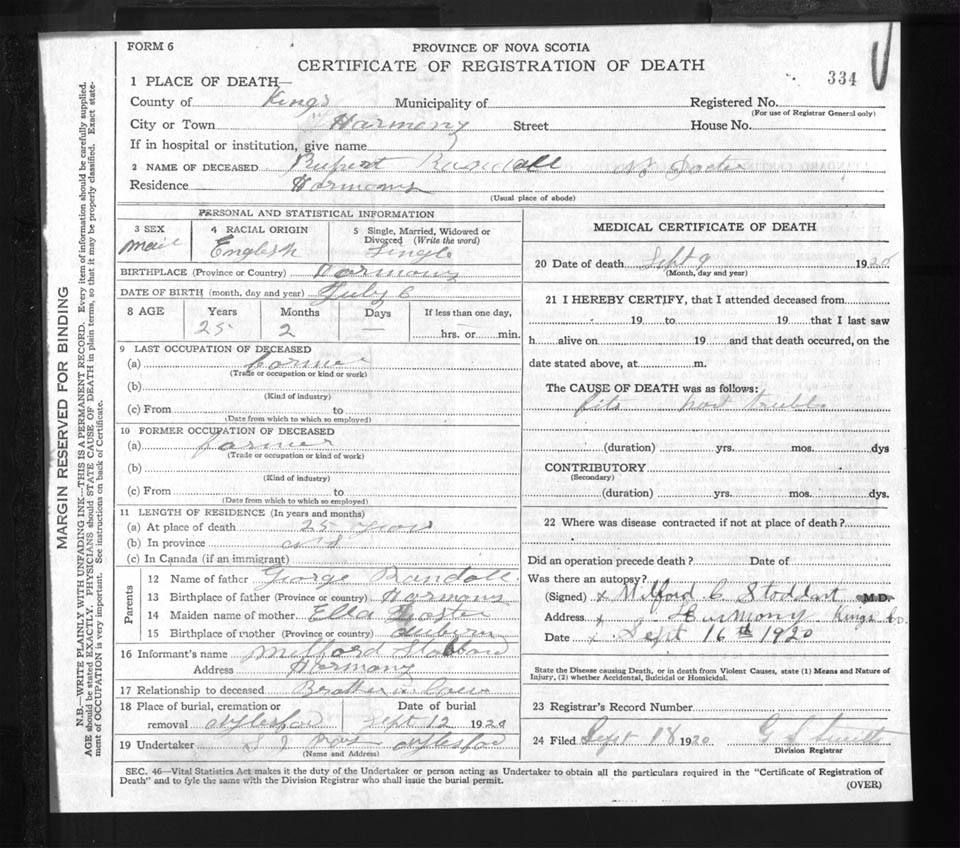 FORM 6
PROVINCE OF NOVA SCOTIA
CERTIFICATE OF REGISTRATION OF DEATH
334
1 PLACE OF DEATH—
County of Kings Municipality of Registered No.
(For use of Registrar General only)
City or Town Harmony Street House No.
If in hospital or institution, give name
2 NAME OF DECEASED Rupert Randall No Docter
Residence Harmony
(Usual place of abode)
PERSONAL AND STATISTICAL INFORMATION
3 SEX 4 RACIAL ORIGIN 5 Single, Married, Widowed or Divorced (Write the word)
male English Single
BIRTHPLACE (Province or Country) Harmony
DATE OF BIRTH (month, day and year) July 6
8 AGE Years Months Days If less than one day,
25 2 — hrs. or min.
9 LAST OCCUPATION OF DECEASED
(a) farmer
(Trade or occupation or kind or work)
(b)
(Kind of industry)
(c) From to
(Date from which to which so employed)
10 FORMER OCCUPATION OF DECEASED
(a) farmer
(Trade or occupation or kind of work)
(b)
(Kind of industry)
(c) From to
(Date from which to which so employed)
11 LENGTH OF RESIDENCE (In years and months)
(a) At place of death 25 years
(b) In province
(c) In Canada (if an immigrant)
Parents
12 Name of father George Randall
13 Birthplace of father (Province or country) Harmony
14 Maiden name of mother Ella Foster
15 Birthplace of mother (Province or country) Auburn
16 Informant's name Milford Stoddard
Address Harmony
17 Relationship to deceased Brother in Law
18 Place of burial, cremation or removal Aylesford
Date of burial Sept 12 1920
19 Undertaker S J Aylesford
(Name and Address)
MEDICAL CERTIFICATE OF DEATH
20 Date of death Sept 9 1920
(Month, day and year)
21 I HEREBY CERTIFY, that I attended deceased from
19 to 19 that I last saw
h alive on 19 and that death occurred, on the
date stated above, at m.
The CAUSE OF DEATH was as follows:
fits trubble
(duration) yrs. mos. dys
CONTRIBUTORY
(Secondary)
(duration) yrs. mos. dys.
22 Where was disease contracted if not at place of death?
Did an operation precede death? Date of
Was there an autopsy?
(Signed) x Milford C. Stoddart M.D.
Address x Harmony Kings Co.
Date x Sept 16th 1920
State the Disease causing Death, or in death from Violent Causes, state (1) Means and Nature of
Injury, (2) whether Accidental, Suicidal or Homicidal.
23 Registrar's Record Number
24 Filed Sept 18 1920 G S Smith
Division Registrar
SEC. 46—Vital Statistics Act makes it the duty of the Undertaker or person acting as Undertaker to obtain all the particulars required in the "Certificate of Registration of
Death" and to fyle the same with the Division Registrar who shall issue the burial permit.
(OVER)
MARGIN RESERVED FOR BINDING
N.B.—WRITE PLAINLY WITH UNFADING INK—THIS IS A PERMANENT RECORD. Every item of information should be carefully supplied.
AGE should be stated EXACTLY. PHYSICIANS should STATE CAUSE OF DEATH in plain terms, so that it may be properly classified. Exact statement of OCCUPATION is very important. See instructions on back of Certificate.